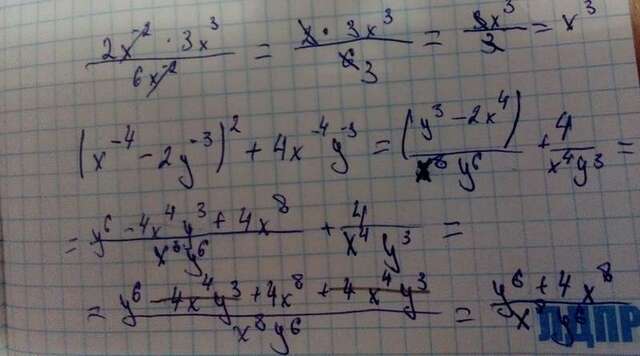 2x⁻² · 3x³ / 6x⁻² = x · 3x³ / 6 3 = 3x³ / 3 = x³
(x⁻⁴ - 2y⁻³)² + 4x⁻⁴y⁻³ = (y³ - 2x⁴) / x⁸y⁶ + 4 / x⁴y³ =
= y⁶ - 4x⁴y³ + 4x⁸ / x⁸y⁶ + 4 / x⁴y³ =
= y⁶ - 4x⁴y³ + 4x⁸ + 4x⁴y³ / x⁸y⁶ = y⁶ + 4x⁸ / x⁸y⁶
ЛДПР